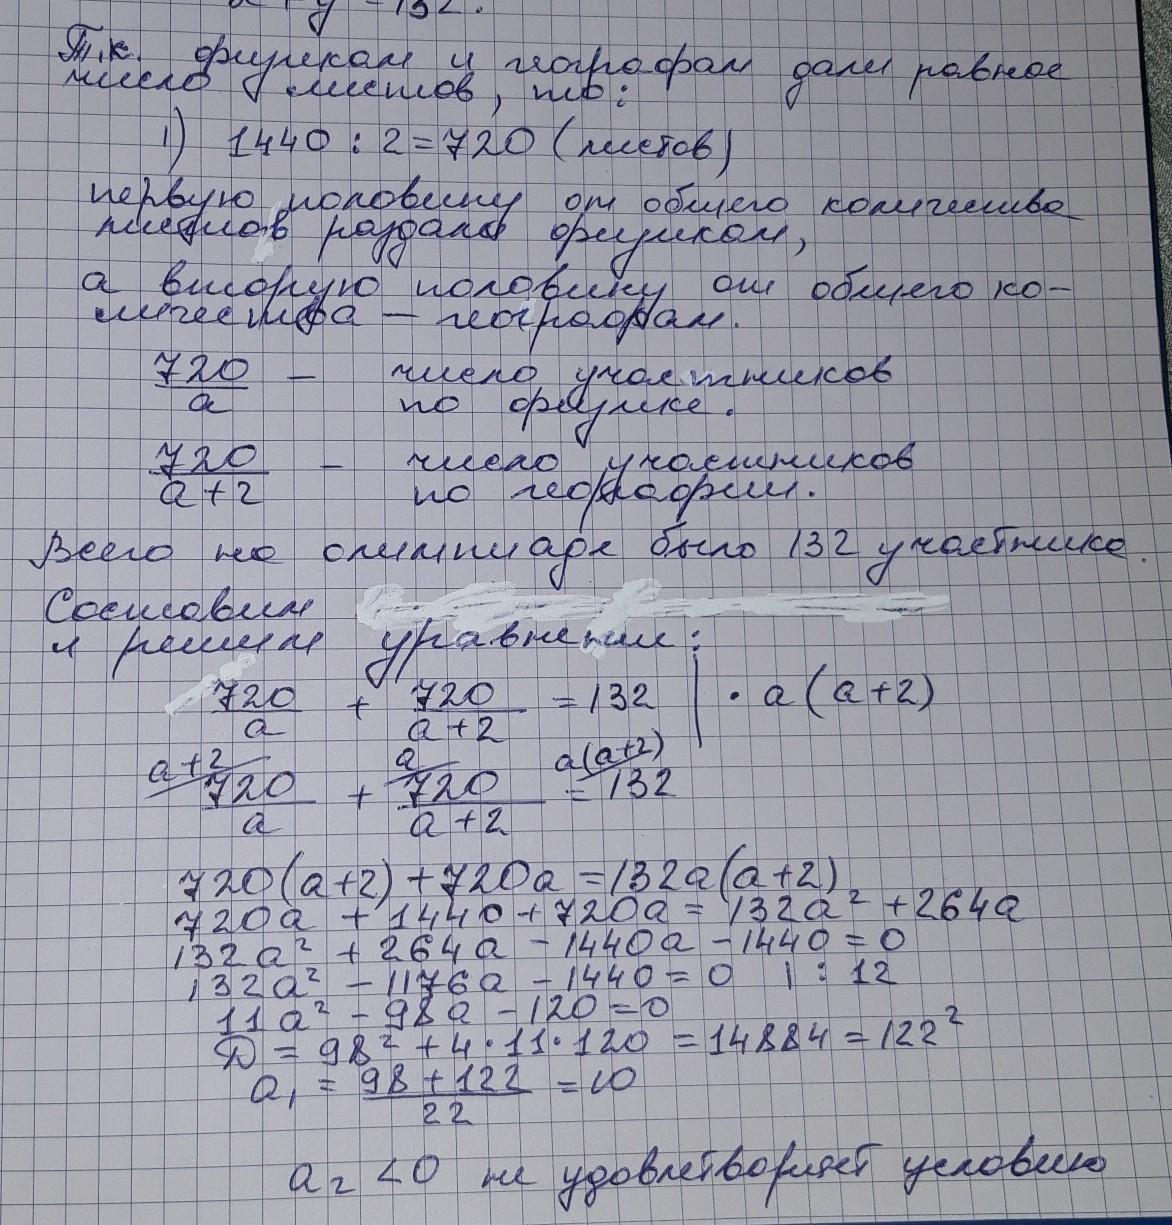 x + y = 132.
Т.к. физикам и географам дали равное
число листов, то:
1) 1440 : 2 = 720 (листов)
первую половину от общего количества
листов раздали физикам,
а вторую половину от общего ко-
личества — географам.
720/a — число участников
по физике.
720/(a+2) — число участников
по географии.
Всего на олимпиаде было 132 участника.
Составим
и решим уравнение:
720/a + 720/(a+2) = 132 | · a(a+2)
a+2 a a(a+2)
720/a + 720/(a+2) = 132
720(a+2) + 720a = 132a(a+2)
720a + 1440 + 720a = 132a² + 264a
132a² + 264a - 1440a - 1440 = 0
132a² - 1176a - 1440 = 0 | : 12
11a² - 98a - 120 = 0
Д = 98² + 4·11·120 = 14884 = 122²
a₁ = (98 + 122)/22 = 10
a₂ < 0 не удовлетворяет условию